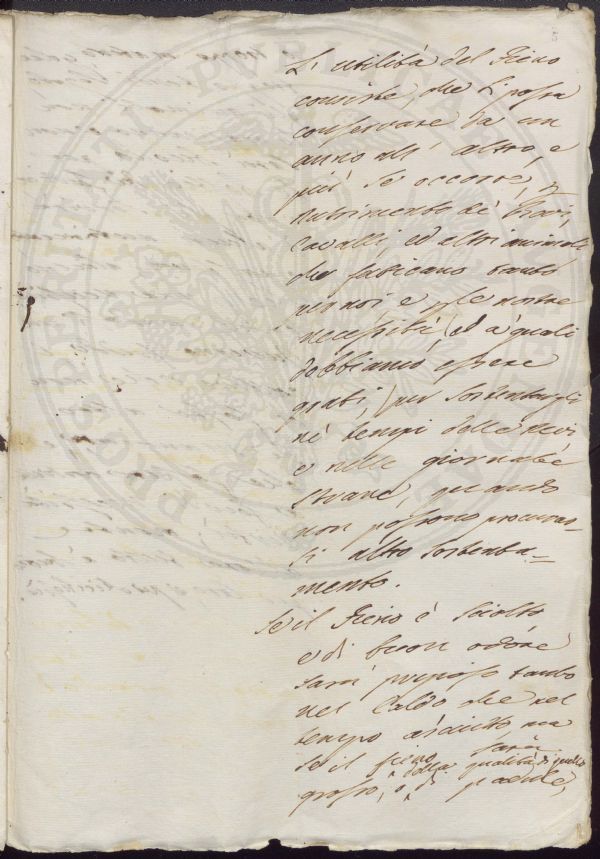 L'utilità del Fieno
consiste, che si possa
conservare da un
anno all' altro, e
più se occorre, p
nutrimento de' Bovi,
Cavalli, ed altri animali
che faticano tanto
p noi e p le nostre
necessità, ed a' quali
dobbiamo essere
grati, per sostentargli
ne' tempi delle nevi
e nelle giornate
strane, quando
non possono procurar-
si altro sostenta-
mento.
Se il Fieno è sciolto
e di buon odore
sarà prezioso tanto
nel Caldo che nel
tempo asciutto ma
se il fieno sarà
grosso, o della qualità di quello
di padule,
PROSPERITATI PVBLICAE AVGENDAE